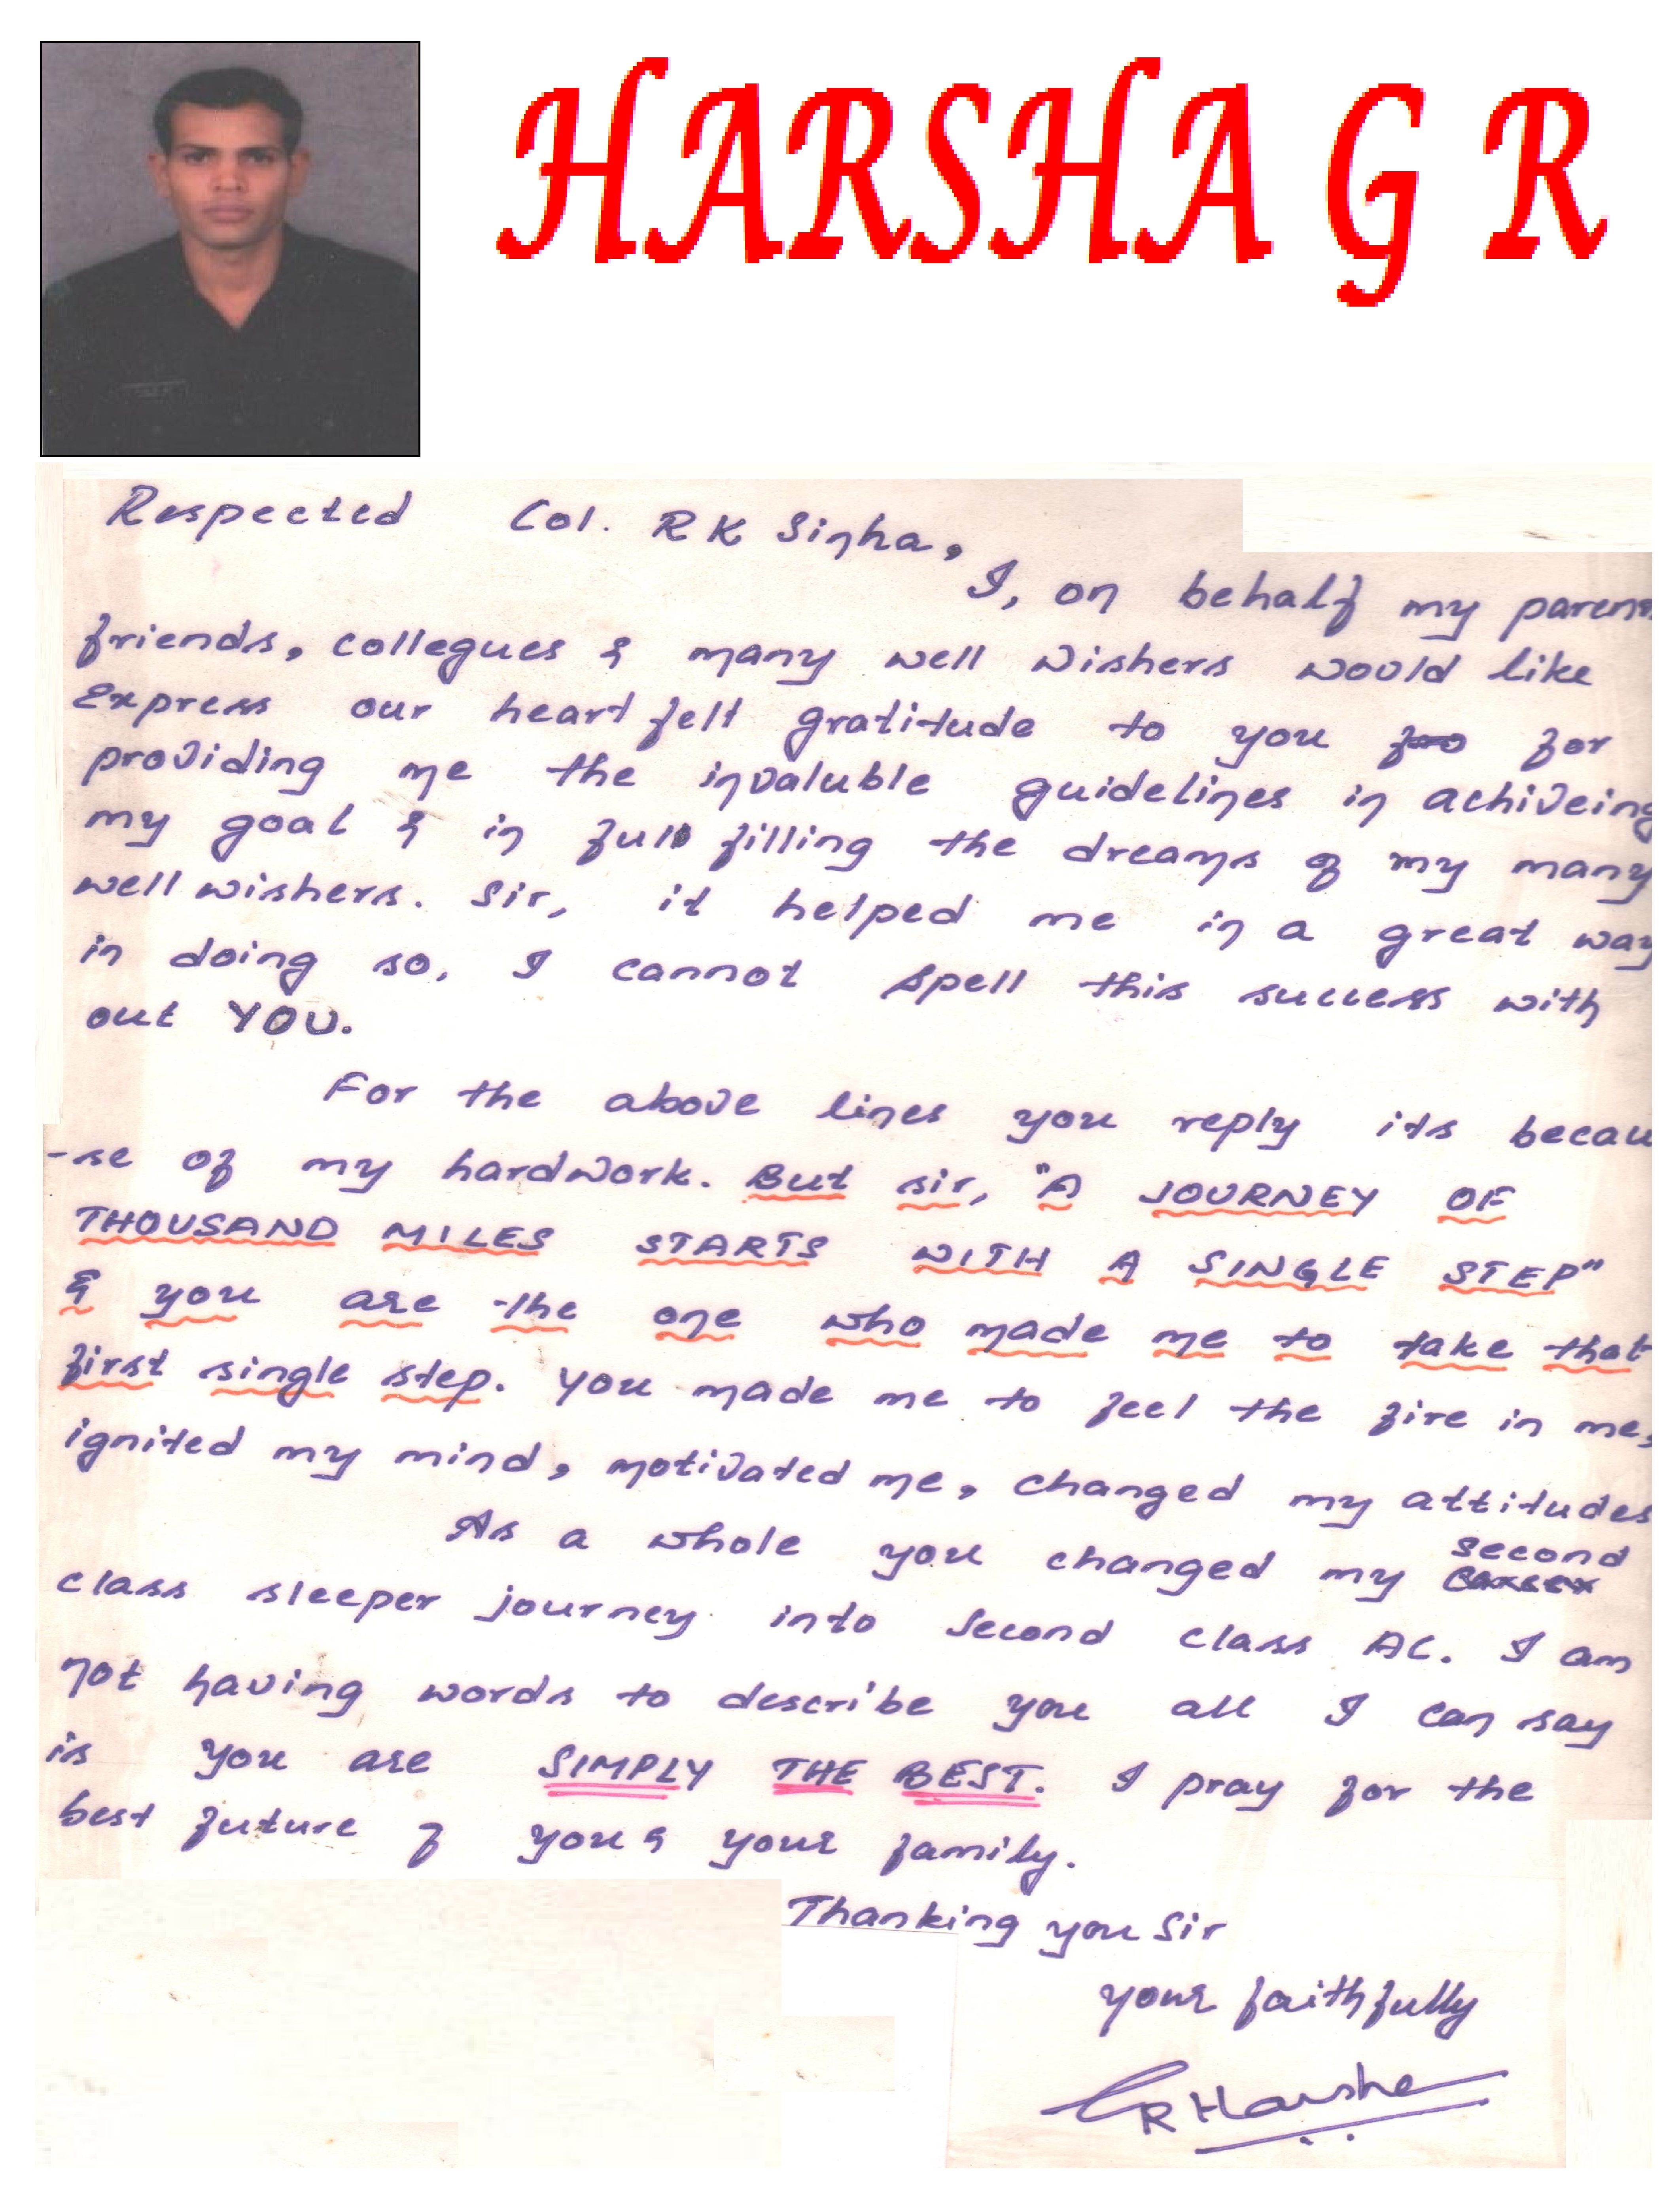 HARSHA G R
Respected Col. RK Sinha,
I, on behalf my paren
friends, collegues & many well wishers would like
Express our heart felt gratitude to you for
providing me the invaluble guidelines in achiveing
my goal & in full filling the dreams of my many
well wishers. Sir, it helped me in a great way
in doing so, I cannot spell this success with
out YOU.
For the above lines you reply its becau
-se of my hardwork. But sir, "A JOURNEY OF
THOUSAND MILES STARTS WITH A SINGLE STEP"
& you are the one who made me to take that
first single step. You made me to feel the fire in me,
ignited my mind, motivated me, changed my attitudes
As a whole you changed my second
class sleeper journey into second class AC. I am
not having words to describe you all I can say
is you are SIMPLY THE BEST. I pray for the
best future of you & your family.
Thanking you Sir
your faithfully
GR Harsha